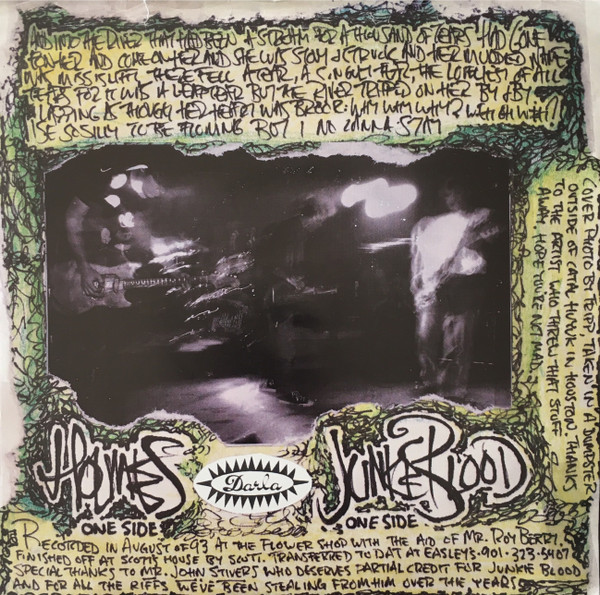 AND INTO THE RIVER THAT HAD BEEN A STREAM FOR A THOUSAND OF TEARS HAD GONE
HER AND COME ON HER AND SHE WAS STOUT & STRUCK AND HER MUDDIED NAME
WAS MISSISLIFFI, THERE FELL A TEAR, A SINGULT TEAR, THE LOVELIEST OF ALL
TEARS FOR IT WAS A LEAPTEAR BUT THE RIVER TRIPPED ON HER BY & BY.
LAPPING AS THOUGH HER HEART WAS BROOK: WHY WHY WHY? WEH OH WEH!
I'SE SO SILLY TO BE FLOWING BUT I NO CANNA STAY
COVER PHOTO BY TRIPP. TAKEN IN A DUMPSTER
OUTSIDE OF CATAL HUYUK IN HOUSTON. THANKS
TO THE ARTIST WHO THREW THAT STUFF
AWAY. HOPE YOU'RE NOT MAD
HOLMES
ONE SIDE
Darla
JUNKIE BLOOD
ONE SIDE
RECORDED IN AUGUST OF 93 AT THE FLOWER SHOP WITH THE AID OF MR. ROY BERRY.
FINISHED OFF AT SCOTT'S HOUSE BY SCOTT. TRANSFERRED TO DAT AT EASLEY'S. 901-323-5407
SPECIAL THANKS TO MR. JOHN STIVERS WHO DESERVES PARTIAL CREDIT FOR JUNKIE BLOOD
AND FOR ALL THE RIFFS WE'VE BEEN STEALING FROM HIM OVER THE YEARS